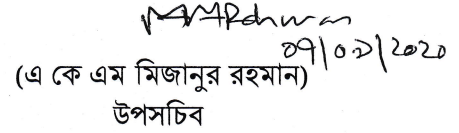 09/02/2020
(এ কে এম মিজানুর রহমান)
উপসচিব